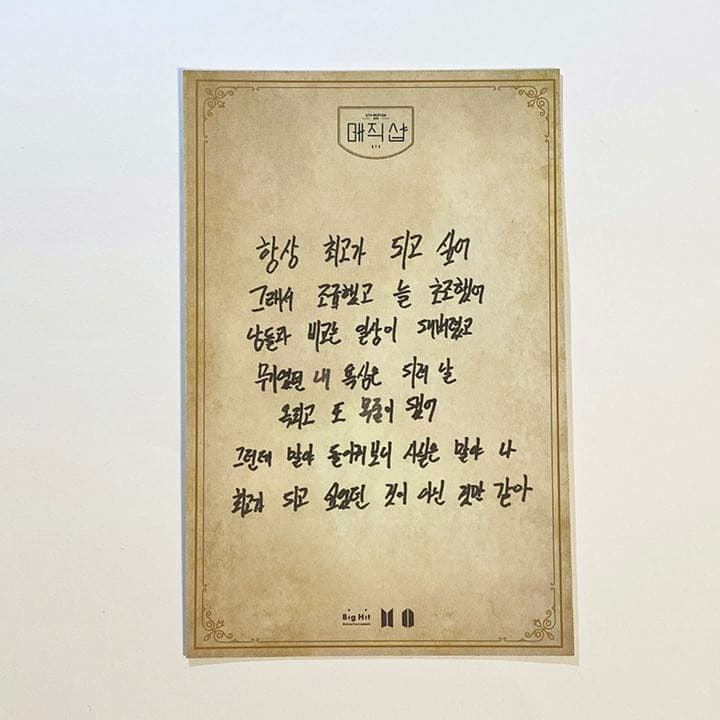 매직샵
BTS
항상 최고가 되고 싶어
그래서 조급했고 늘 초조했어
남들과 비교는 일상이 돼버렸고
무기였던 내 욕심은 되려 날
옥죄고 또 목줄이 됐어
그런데 말야 돌이켜보니 사실은 말야 나
최고가 되고 싶었던 것이 아닌 것만 같아
Big Hit
Entertainment